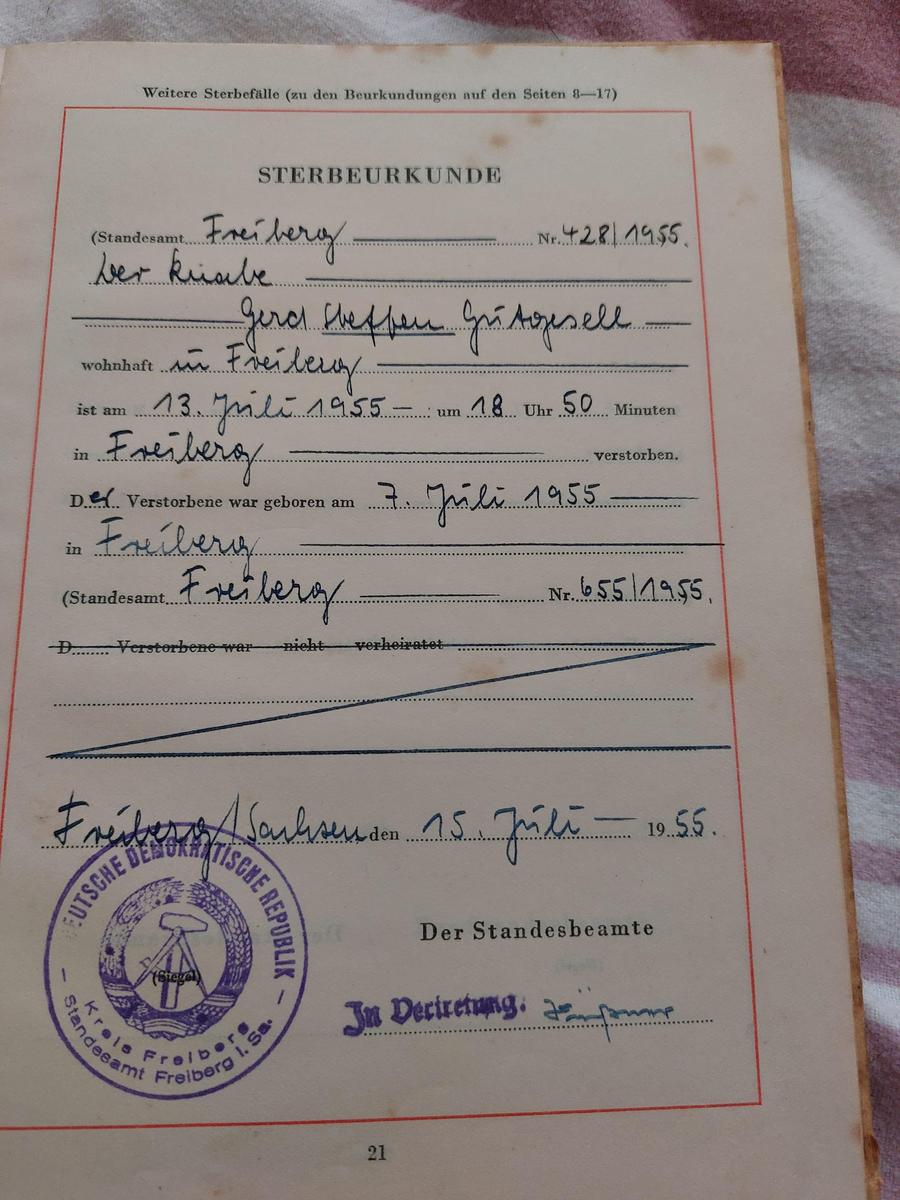 Weitere Sterbefälle (zu den Beurkundungen auf den Seiten 8—17)
STERBEURKUNDE
(Standesamt Freiberg Nr. 428/1955.
Der Knabe
Gerd Steffen Gutgesell
wohnhaft in Freiberg
ist am 13. Juli 1955 — um 18 Uhr 50 Minuten
in Freiberg verstorben.
Der Verstorbene war geboren am 7. Juli 1955
in Freiberg
(Standesamt Freiberg Nr. 655/1955,
D Verstorbene war nicht verheiratet
Freiberg/Sachsen den 15. Juli — 1955.
DEUTSCHE DEMOKRATISCHE REPUBLIK
(Siegel)
Kreis Freiberg
Standesamt Freiberg i. Sa.
Der Standesbeamte
In Vertretung.
21